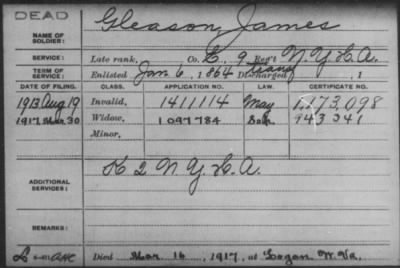 DEAD
Gleason, James
NAME OF SOLDIER:
SERVICE: Late rank, Co. L, 9 Reg't N.Y.H.A.
TERM OF SERVICE: Enlisted Jan 6, 1864 Discharged , 1
DATE OF FILING. CLASS. APPLICATION NO. LAW. CERTIFICATE NO.
1913 Aug 19 Invalid, 1411114 May 1,173,098
1917. Mar. 30 Widow, 1097784 943341
Minor,
K 2 N.Y.H.A.
ADDITIONAL SERVICES:
REMARKS:
Died Mar. 16, 1917, at Logan W. Va.